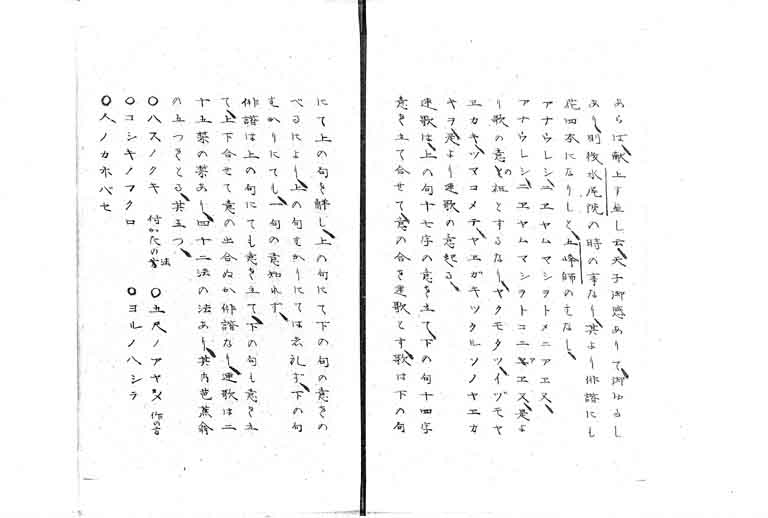 あらば、献上す並し云、天子御感ありて、御ゆるし
あり、則後水尾院の時の事なり、其より俳諧にも
花四本になりしと、五峰師のもなし、
アナウレシ、ニヱヤ、ムマシヲトメニアエヌ、
アナウレシ、ニヱヤ、ムマシヲトコニアヱヌ、是よ
り歌の意の祖とするなり、ヤクモタツ、イヅモヤ
ヱカキ、ツマコメテ、ヤエガキツクル、ソノヤヱカ
キヲ、是より連歌の意起る、
連歌は、上の句十七字の意を立て、下の句十四字
意を立て合せて、意の合を連歌とす、歌は下の句
にて上の句を解し、上の句にて下の句の意をの
べるにより、上の句ばかりにては志れず、下の句
ばかりにても、一句の意知れず、
俳諧は上の句にても意を立て、下の句も意を立
て、上下合せて意の出合ぬか俳諧なり、連歌は二
十五禁の禁あり、四十二法の法あり、其内芭蕉翁
の五つをとる、其五つ、
〇ハスノクキ 付かたの法 〇五尺ノアヤメ 作の
〇コシキノフクロ 〇ヨルノハシラ
〇人ノカホバセ